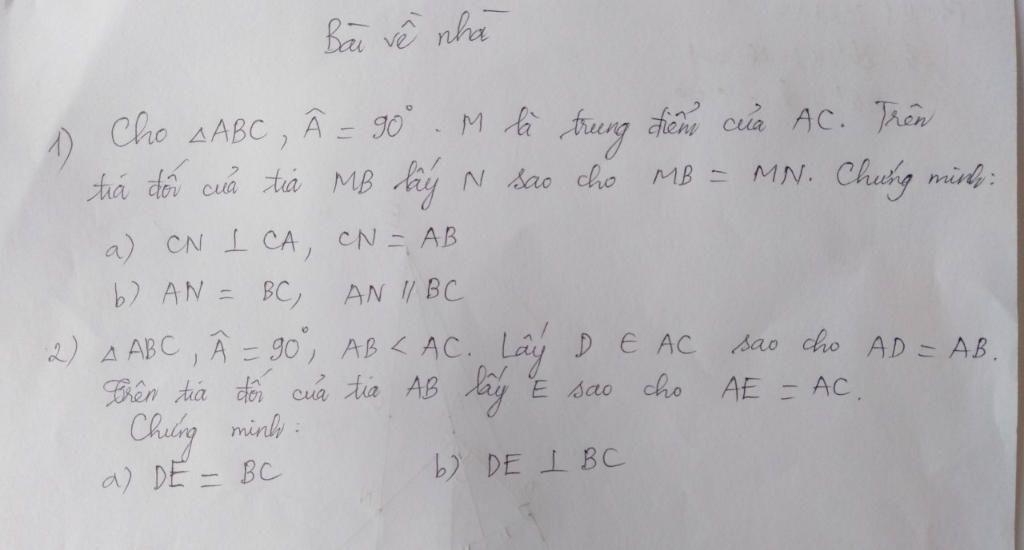 Bài về nhà
1) Cho △ABC, Â = 90°. M là trung điểm của AC. Trên
tia đối của tia MB lấy N sao cho MB = MN. Chứng minh:
a) CN ⊥ CA, CN = AB
b) AN = BC, AN // BC
2) △ABC, Â = 90°, AB < AC. Lấy D ∈ AC sao cho AD = AB.
Trên tia đối của tia AB lấy E sao cho AE = AC.
Chứng minh:
a) DE = BC b) DE ⊥ BC